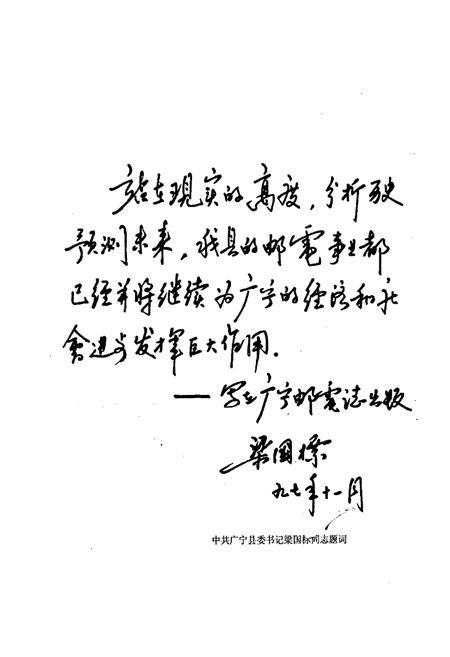 站在现实的高度，分析历史
预测未来，我县的邮電事业都
已经并将继续为广宁的经济和社
會进步发挥巨大作用。
——写在广宁邮電志出版
梁國標
九七年十一月
中共广宁县委书记梁国标同志题词